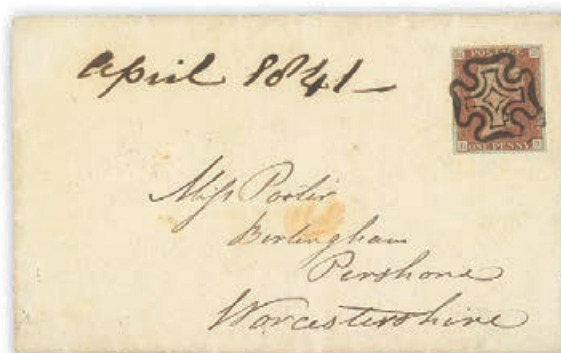 April 1841 —
POSTAGE
ONE PENNY
Miss Porter
Birlingham
Pershore
Worcestershire